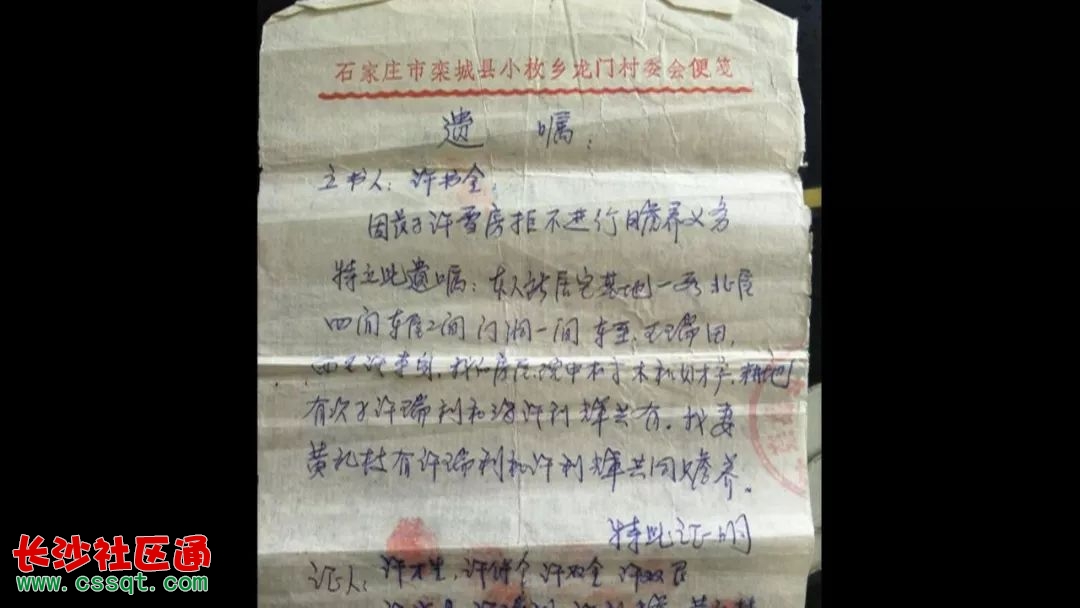 石家庄市栾城县小枚乡龙门村委会便笺
遗嘱：
立书人：许书全，
因长子许雪房拒不进行赡养义务
特立此遗嘱：本人所居宅基地一所北屋
四间东屋2间门洞一间东至：王瑞田，
西至许，我的房屋院中树木和财产，耕地
有次子许瑞利和许利辉共有。我妻
黄礼枝有许瑞利和许利辉共同赡养。
特此证明
证人：许全
长沙社区通
www.cssqt.com